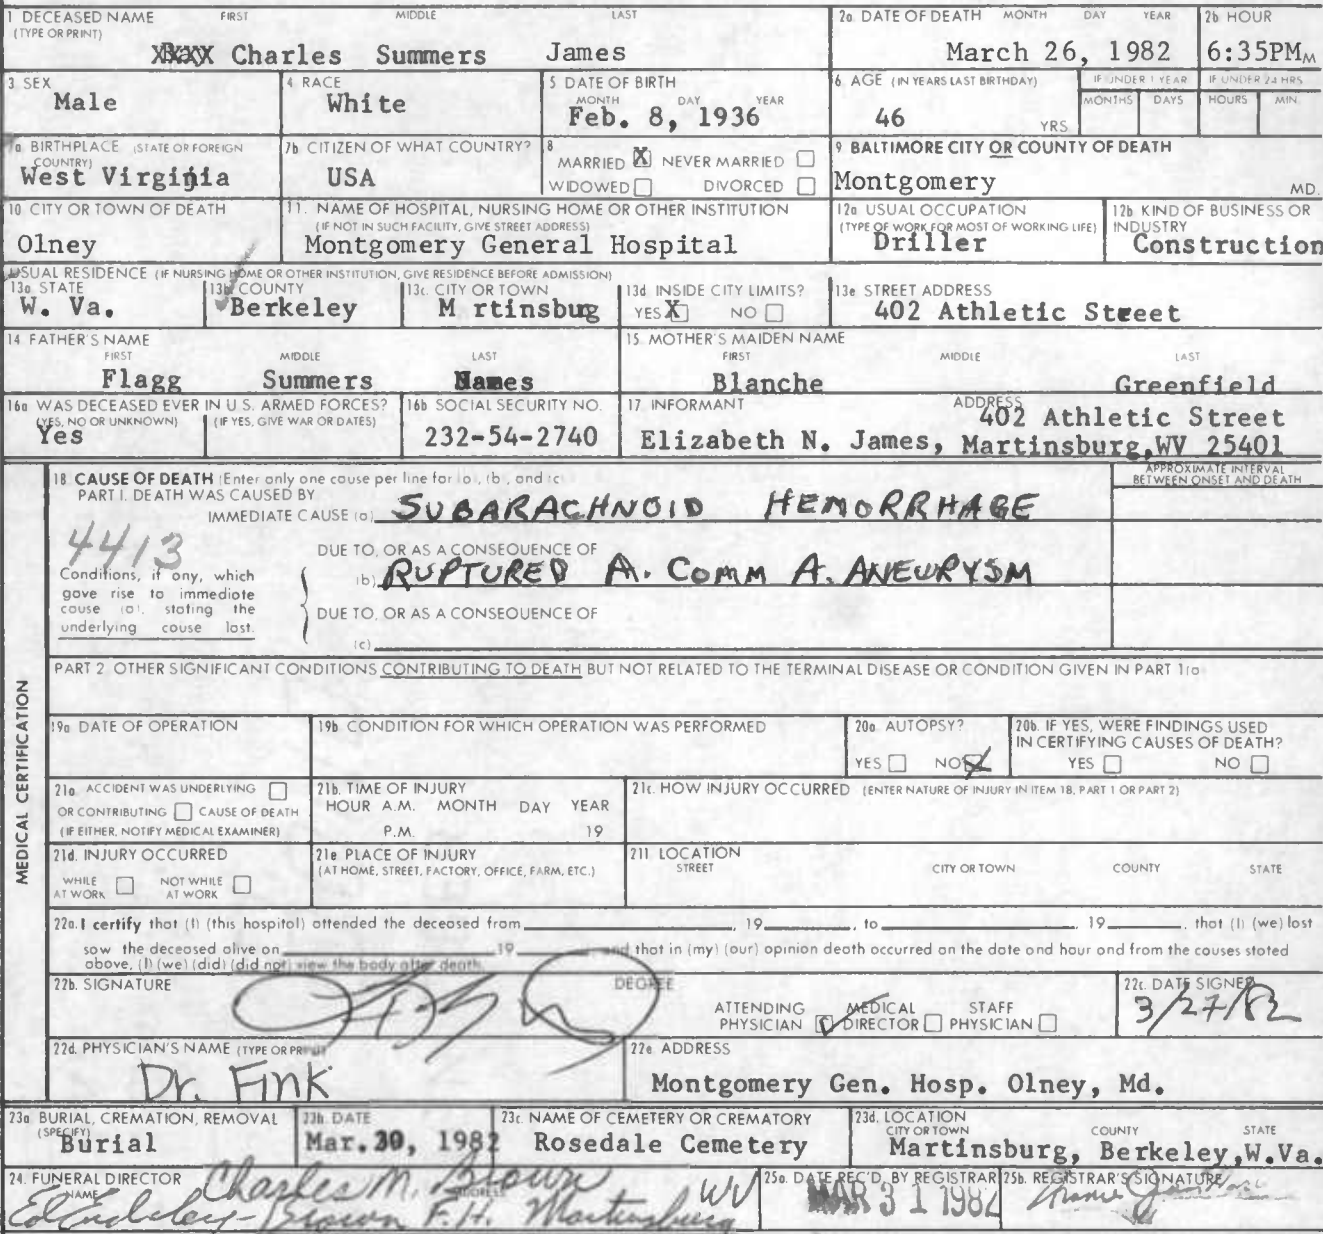 1 DECEASED NAME FIRST MIDDLE LAST
(TYPE OR PRINT)
Charles Summers James
2a. DATE OF DEATH MONTH DAY YEAR
March 26, 1982
2b HOUR
6:35PM M
3 SEX
Male
4 RACE
White
5 DATE OF BIRTH
MONTH DAY YEAR
Feb. 8, 1936
6 AGE (IN YEARS LAST BIRTHDAY)
46 YRS
IF UNDER 1 YEAR
MONTHS DAYS
IF UNDER 24 HRS
HOURS MIN.
7a BIRTHPLACE (STATE OR FOREIGN
COUNTRY)
West Virginia
7b CITIZEN OF WHAT COUNTRY?
USA
8
MARRIED X NEVER MARRIED
WIDOWED DIVORCED
9 BALTIMORE CITY OR COUNTY OF DEATH
Montgomery MD.
10 CITY OR TOWN OF DEATH
Olney
11. NAME OF HOSPITAL, NURSING HOME OR OTHER INSTITUTION
(IF NOT IN SUCH FACILITY, GIVE STREET ADDRESS)
Montgomery General Hospital
12a USUAL OCCUPATION
(TYPE OF WORK FOR MOST OF WORKING LIFE)
Driller
12b KIND OF BUSINESS OR
INDUSTRY
Construction
USUAL RESIDENCE (IF NURSING HOME OR OTHER INSTITUTION, GIVE RESIDENCE BEFORE ADMISSION)
13a STATE
W. Va.
13b COUNTY
Berkeley
13c. CITY OR TOWN
M rtinsbug
13d. INSIDE CITY LIMITS?
YES X NO
13e STREET ADDRESS
402 Athletic Street
14 FATHER'S NAME
FIRST MIDDLE LAST
Flagg Summers Names
15 MOTHER'S MAIDEN NAME
FIRST MIDDLE LAST
Blanche Greenfield
16a WAS DECEASED EVER IN U.S. ARMED FORCES?
(YES, NO OR UNKNOWN) (IF YES, GIVE WAR OR DATES)
Yes
16b SOCIAL SECURITY NO.
232-54-2740
17 INFORMANT ADDRESS
402 Athletic Street
Elizabeth N. James, Martinsburg,WV 25401
MEDICAL CERTIFICATION
18 CAUSE OF DEATH (Enter only one cause per line for (a), (b), and (c)
PART I. DEATH WAS CAUSED BY
APPROXIMATE INTERVAL
BETWEEN ONSET AND DEATH
IMMEDIATE CAUSE (a) SUBARACHNOID HEMORRHAGE
4413
DUE TO, OR AS A CONSEQUENCE OF
(b) RUPTURED A. COMM A. ANEURYSM
Conditions, if any, which
gave rise to immediate
cause (a), stating the
underlying cause last.
DUE TO, OR AS A CONSEQUENCE OF
(c)
PART 2 OTHER SIGNIFICANT CONDITIONS CONTRIBUTING TO DEATH BUT NOT RELATED TO THE TERMINAL DISEASE OR CONDITION GIVEN IN PART 1(a)
19a DATE OF OPERATION
19b CONDITION FOR WHICH OPERATION WAS PERFORMED
20a AUTOPSY?
YES NO
20b. IF YES, WERE FINDINGS USED
IN CERTIFYING CAUSES OF DEATH?
YES NO
21a. ACCIDENT WAS UNDERLYING
OR CONTRIBUTING CAUSE OF DEATH
(IF EITHER, NOTIFY MEDICAL EXAMINER)
21b. TIME OF INJURY
HOUR A.M. MONTH DAY YEAR
P.M. 19
21c. HOW INJURY OCCURRED (ENTER NATURE OF INJURY IN ITEM 18, PART 1 OR PART 2)
21d. INJURY OCCURRED
WHILE AT WORK NOT WHILE AT WORK
21e PLACE OF INJURY
(AT HOME, STREET, FACTORY, OFFICE, FARM, ETC.)
21f. LOCATION
STREET CITY OR TOWN COUNTY STATE
22a. I certify that (I) (this hospital) attended the deceased from , 19 , to , 19 , that (I) (we) last
saw the deceased alive on 19 and that in (my) (our) opinion death occurred on the date and hour and from the causes stated
above, (I) (we) (did) (did not) view the body after death.
22b. SIGNATURE DEGREE
ATTENDING PHYSICIAN MEDICAL DIRECTOR STAFF PHYSICIAN
22c. DATE SIGNED
3/27/82
22d. PHYSICIAN'S NAME (TYPE OR PRINT)
Dr. Fink
22e ADDRESS
Montgomery Gen. Hosp. Olney, Md.
23a BURIAL, CREMATION, REMOVAL
(SPECIFY)
Burial
23b. DATE
Mar.30, 1982
23c NAME OF CEMETERY OR CREMATORY
Rosedale Cemetery
23d. LOCATION
CITY OR TOWN COUNTY STATE
Martinsburg, Berkeley,W.Va.
24. FUNERAL DIRECTOR
NAME ADDRESS
Charles M. Brown WV
Brown F.H. Martinsburg
25a. DATE REC'D. BY REGISTRAR
MAR 31 1982
25b. REGISTRAR'S SIGNATURE